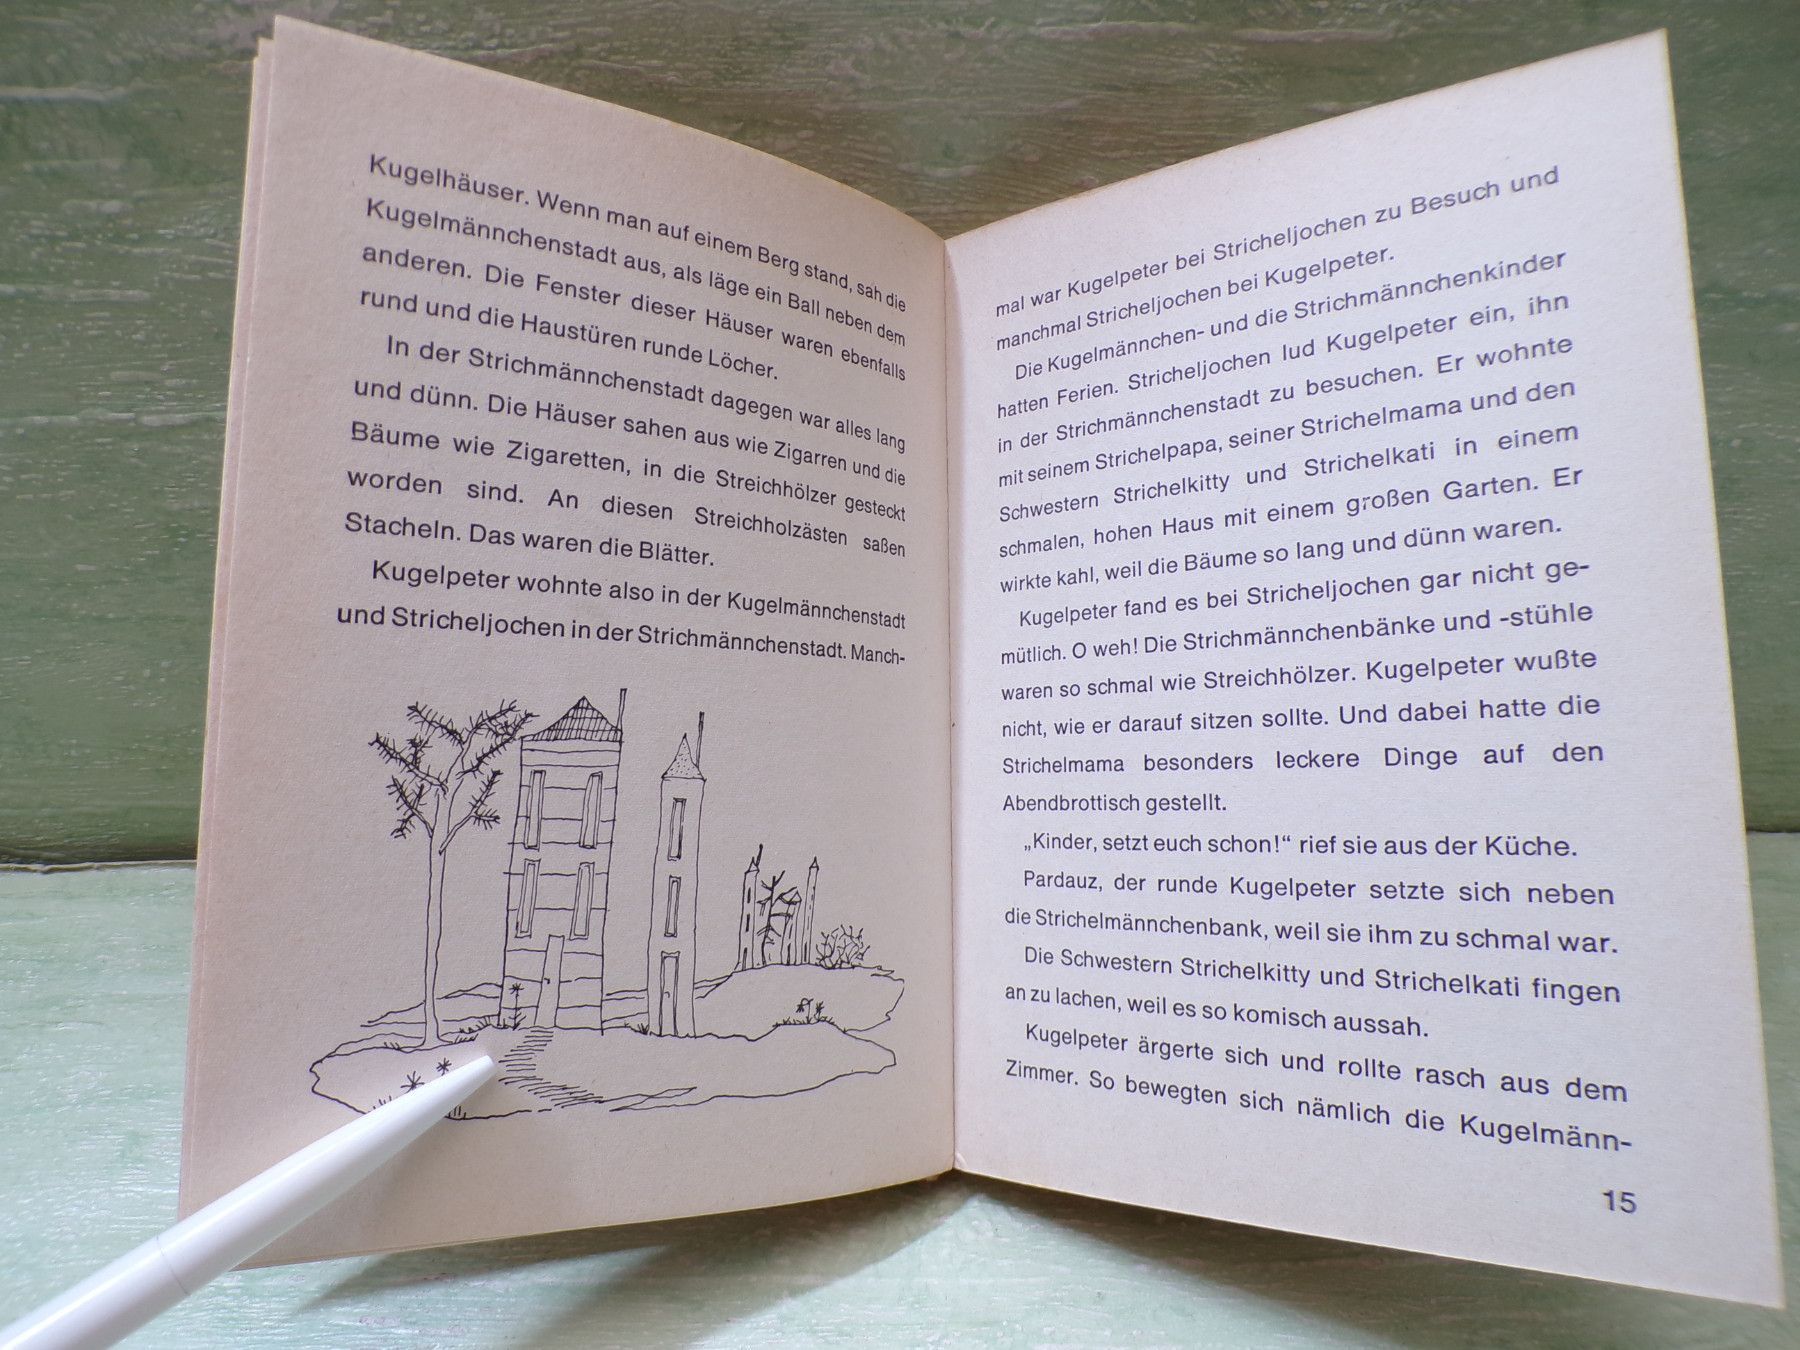 Kugelhäuser. Wenn man auf einem Berg stand, sah die
Kugelmännchenstadt aus, als läge ein Ball neben dem
anderen. Die Fenster dieser Häuser waren ebenfalls
rund und die Haustüren runde Löcher.
In der Strichmännchenstadt dagegen war alles lang
und dünn. Die Häuser sahen aus wie Zigarren und die
Bäume wie Zigaretten, in die Streichhölzer gesteckt
worden sind. An diesen Streichholzästen saßen
Stacheln. Das waren die Blätter.
Kugelpeter wohnte also in der Kugelmännchenstadt
und Stricheljochen in der Strichmännchenstadt. Manch-
mal war Kugelpeter bei Stricheljochen zu Besuch und
manchmal Stricheljochen bei Kugelpeter.
Die Kugelmännchen- und die Strichmännchenkinder
hatten Ferien. Stricheljochen lud Kugelpeter ein, ihn
in der Strichmännchenstadt zu besuchen. Er wohnte
mit seinem Strichelpapa, seiner Strichelmama und den
Schwestern Strichelkitty und Strichelkati in einem
schmalen, hohen Haus mit einem großen Garten. Er
wirkte kahl, weil die Bäume so lang und dünn waren.
Kugelpeter fand es bei Stricheljochen gar nicht ge-
mütlich. O weh! Die Strichmännchenbänke und -stühle
waren so schmal wie Streichhölzer. Kugelpeter wußte
nicht, wie er darauf sitzen sollte. Und dabei hatte die
Strichelmama besonders leckere Dinge auf den
Abendbrottisch gestellt.
„Kinder, setzt euch schon!“ rief sie aus der Küche.
Pardauz, der runde Kugelpeter setzte sich neben
die Strichelmännchenbank, weil sie ihm zu schmal war.
Die Schwestern Strichelkitty und Strichelkati fingen
an zu lachen, weil es so komisch aussah.
Kugelpeter ärgerte sich und rollte rasch aus dem
Zimmer. So bewegten sich nämlich die Kugelmänn-
15